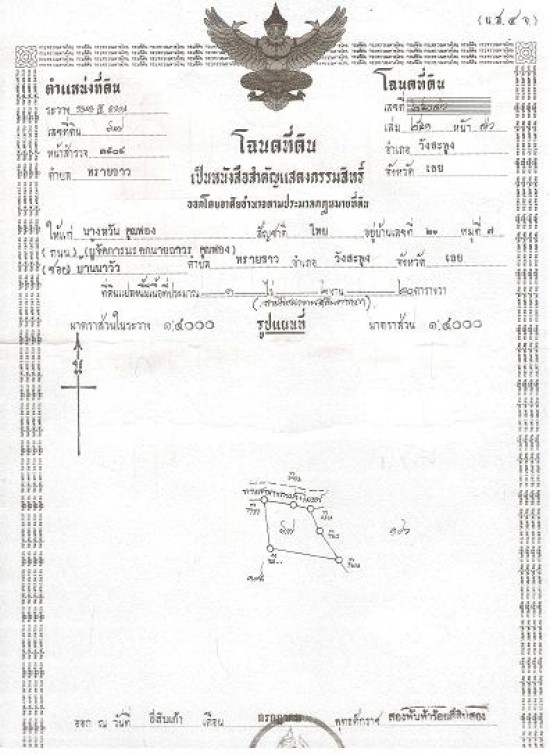 (น.ส.๔ จ.)
ตำแหน่งที่ดิน
ระวาง
เลขที่ดิน ๕๗
หน้าสำรวจ ๑๕๐๔
ตำบล ทรายขาว
โฉนดที่ดิน
เลขที่
เล่ม หน้า ๔๖
อำเภอ วังสะพุง
จังหวัด เลย
โฉนดที่ดิน
เป็นหนังสือสำคัญแสดงกรรมสิทธิ์
ออกโดยอาศัยอำนาจตามประมวลกฎหมายที่ดิน
ให้แก่ นางหวัน คุณพ่อง สัญชาติ ไทย อยู่บ้านเลขที่ ๒๑ หมู่ที่ ๗
(ถนน) (ผู้จัดการมรดกนายถาวร คุณพ่อง)
(ซอย) บ้านนาวัว ตำบล ทรายขาว อำเภอ วังสะพุง จังหวัด เลย
ที่ดินแปลงนี้มีเนื้อที่ประมาณ ๓ ไร่ ๒ งาน ๒๐ ตารางวา
มาตราส่วนในระวาง ๑:๔๐๐๐ รูปแผนที่ มาตราส่วน ๑:๔๐๐๐
น
๕๗
ออก ณ วันที่ ยี่สิบเก้า เดือน กรกฎาคม พุทธศักราช สองพันห้าร้อยสี่สิบสอง